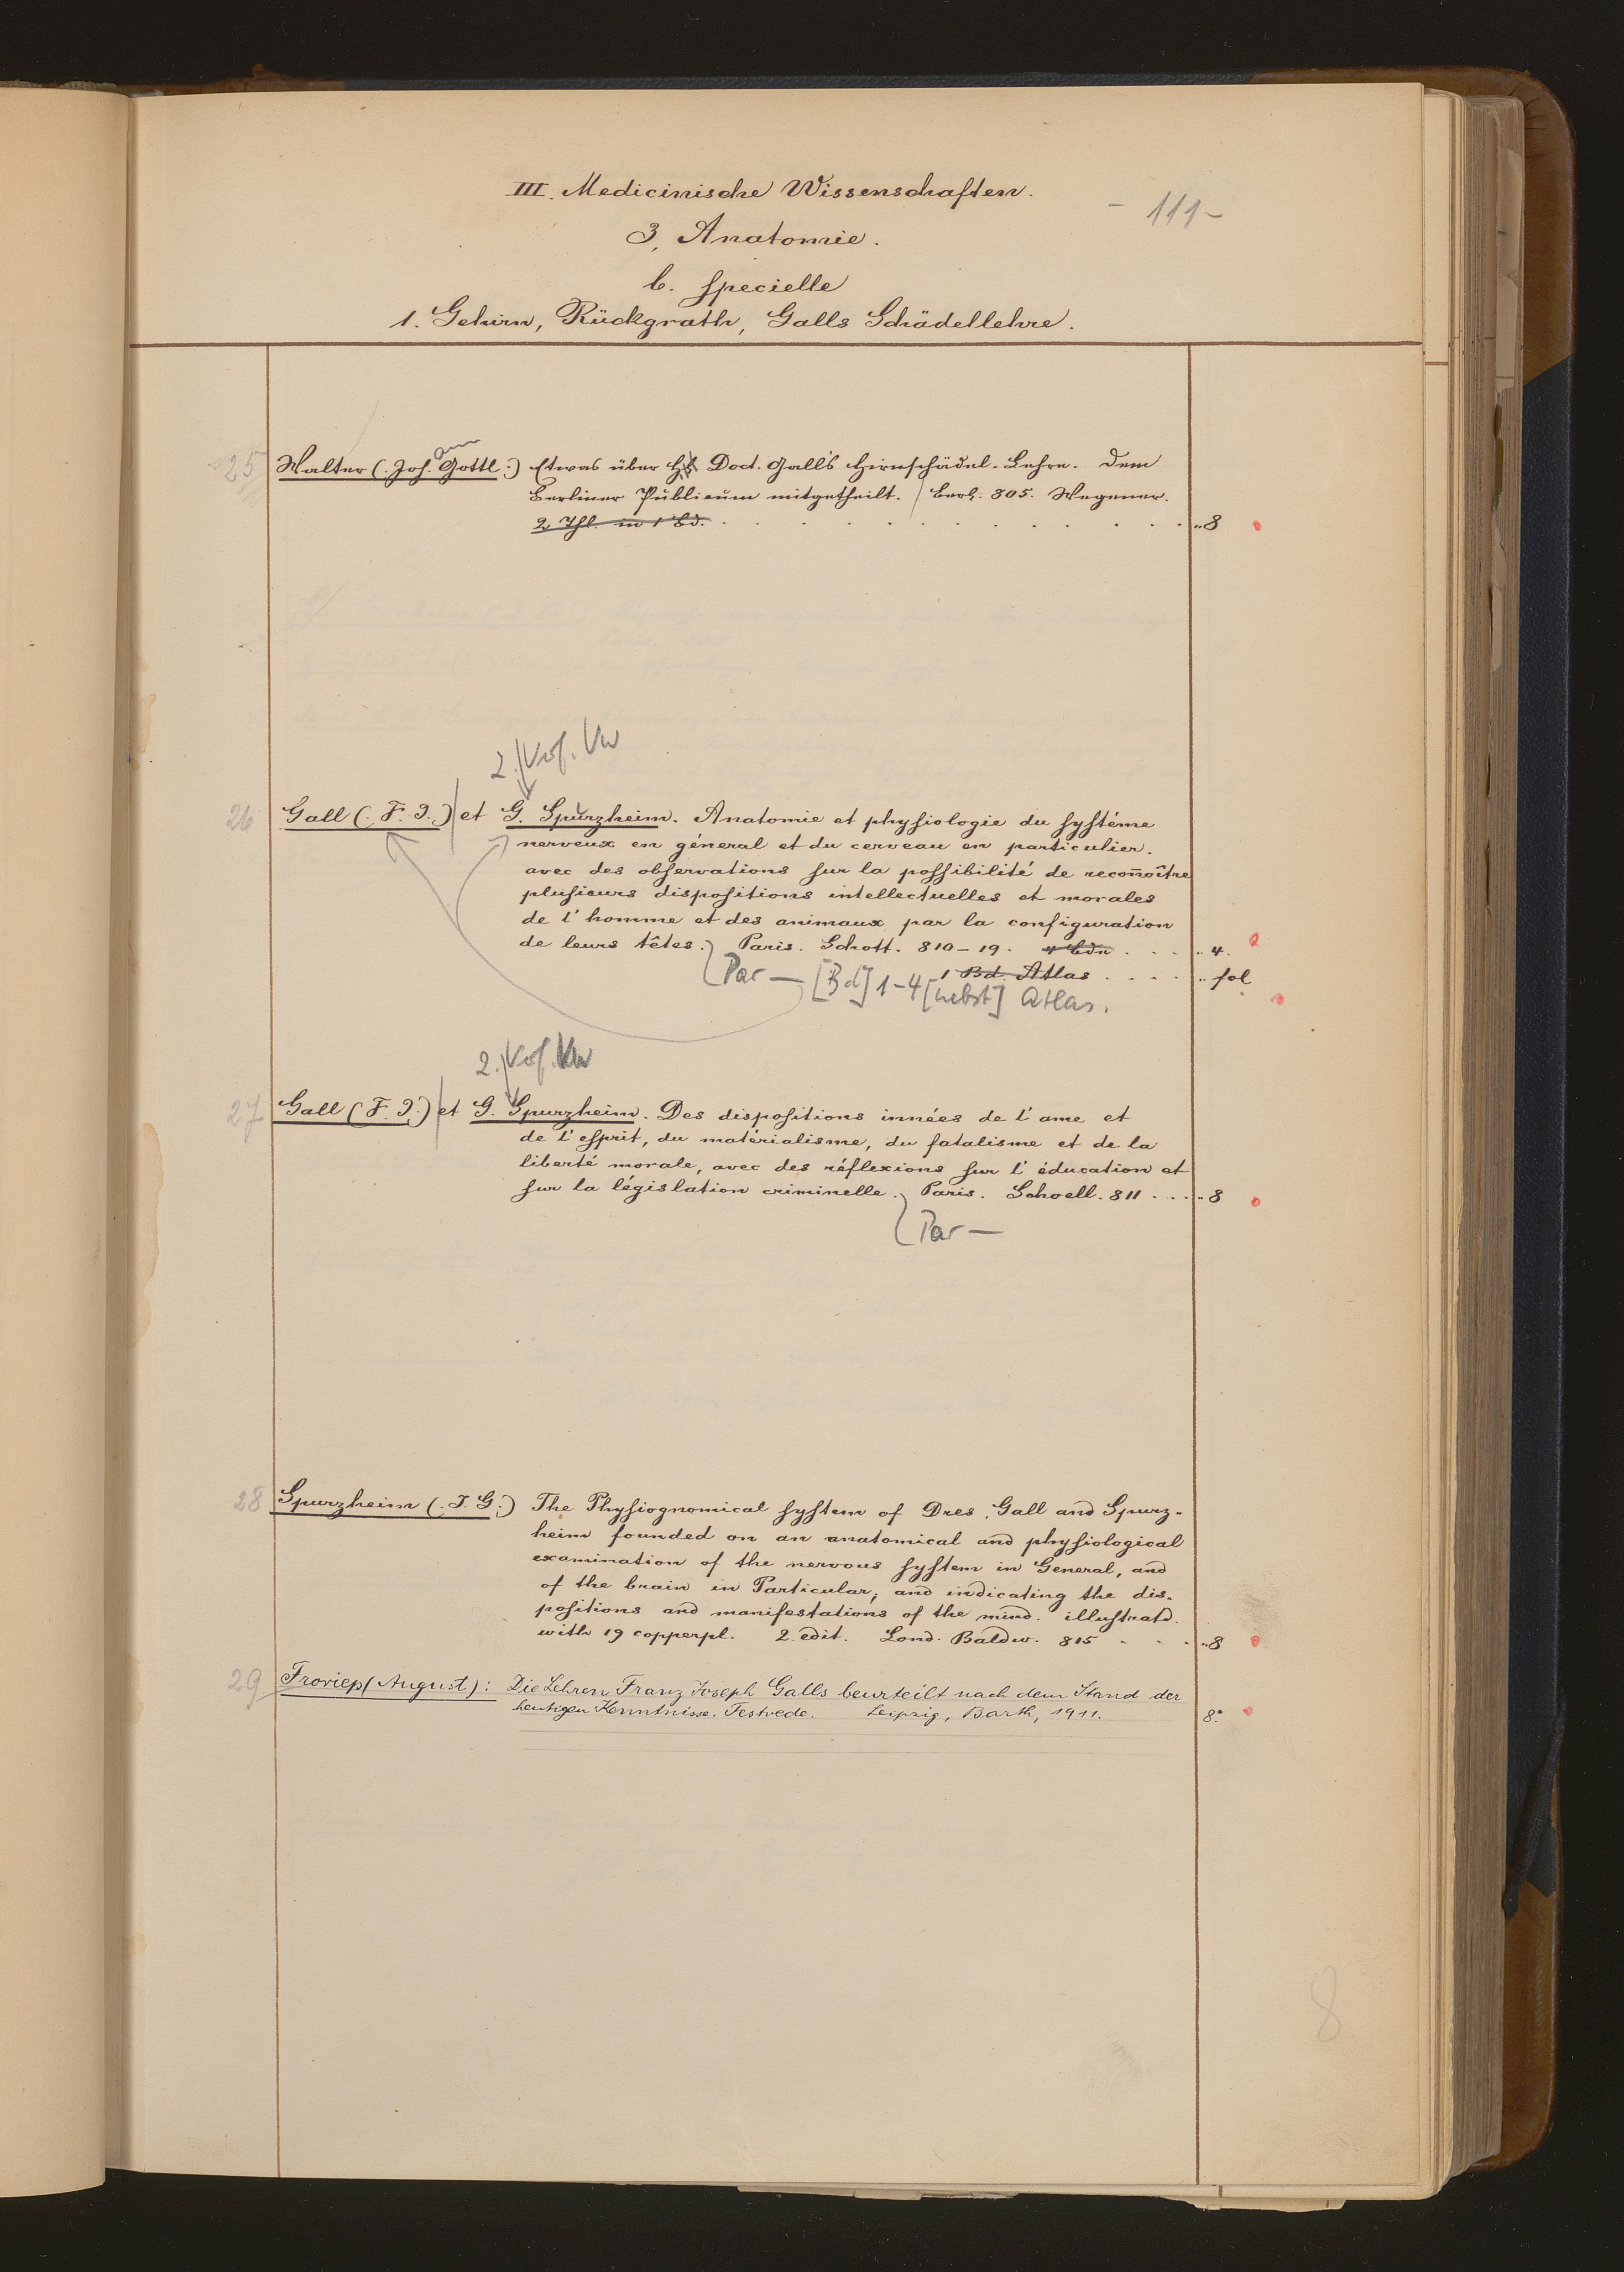 III. Medicinische Wissenschaften.
- 111 -
3, Anatomie.
b. specielle
1. Gehirn, Rückgrath, Galls Schädellehre.
25 Walter (. Joh. Gottl.) Etwas über Doct. Gall's Hirnschädel-Lehre. Dem
Berliner Publicum mitgetheilt. Berl. 805. Wegener.
2 Thl. in 1 Bd. . . . . . . . . . . . „ 8
2. Verf. Vw
26 Gall (. F. J.) et G. Spurzheim. Anatomie et physiologie du systéme
nerveux en géneral et du cerveau en particulier.
avec des observations sur la possibilité de recon̄oître
plusieurs dispositions intellectuelles et morales
de l'homme et des animaux par la configuration
de leurs têtes. Paris. Schott. 810-19. 4 Bde . . . „ 4.
1 Bd. Atlas . . . . „ fol
Par — [Bd] 1-4 [nebst] Atlas.
2. Verf. Vw
27 Gall (F. J.) et G. Spurzheim. Des dispositions innées de l'ame et
de l'esprit, du matérialisme, du fatalisme et de la
liberté morale, avec des réflexions sur l'éducation et
sur la législation criminelle. Paris. Schoell. 811 . . . „ 8
Par —
28 Spurzheim (. J. G.) The Physiognomical system of Dres. Gall and Spurz-
heim founded on an anatomical and physiological
examination of the nervous system in General, and
of the brain in Particular; and indicating the dis-
positions and manifestations of the mind. illustratd.
with 19 copperpl. 2. edit. Lond. Baldw. 815 . . . „ 8
29 Froriep (August): Die Lehren Franz Joseph Galls beurteilt nach dem Stand der
heutigen Kenntnisse. Festrede. Leipzig, Barth, 1911. 8°
8